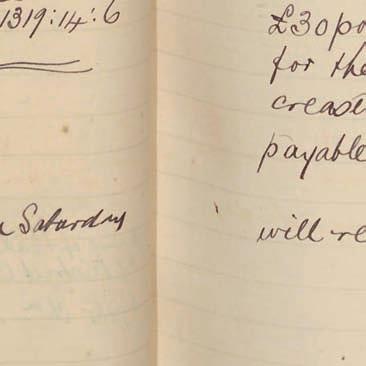 1319:14:6
Saturday
£30 po
for the
crease
payable
will re